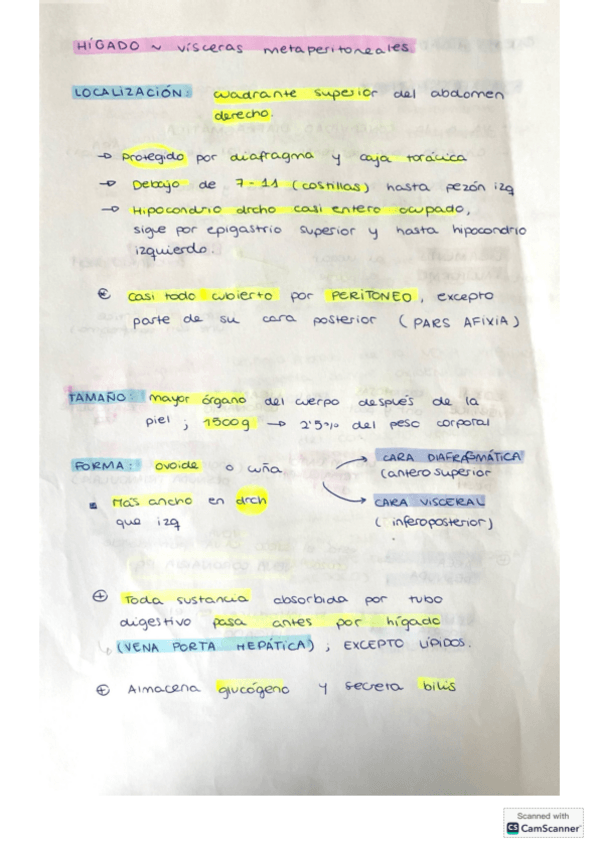 HÍGADO ~ vísceras metaperitoneales.
LOCALIZACIÓN: cuadrante superior del abdomen
derecho.
→ Protegido por diafragma y caja torácica
→ Debajo de 7-11 (costillas) hasta pezón izq
→ Hipocondrio drcho casi entero ocupado,
sigue por epigastrio superior y hasta hipocondrio
izquierdo.
casi todo cubierto por PERITONEO, excepto
parte de su cara posterior (PARS AFIXIA)
TAMAÑO: mayor órgano del cuerpo después de la
piel; 1500g → 2'5% del peso corporal
FORMA: ovoide o cuña
→ CARA DIAFRAGMÁTICA
(antero superior
▪ Más ancho en drch
que izq
→ CARA VISCERAL
(inferoposterior)
⊕ Toda sustancia absorbida por tubo
digestivo pasa antes por hígado
↳ (VENA PORTA HEPÁTICA); EXCEPTO LÍPIDOS.
⊕ Almacena glucógeno y secreta bilis
Scanned with
CS CamScanner